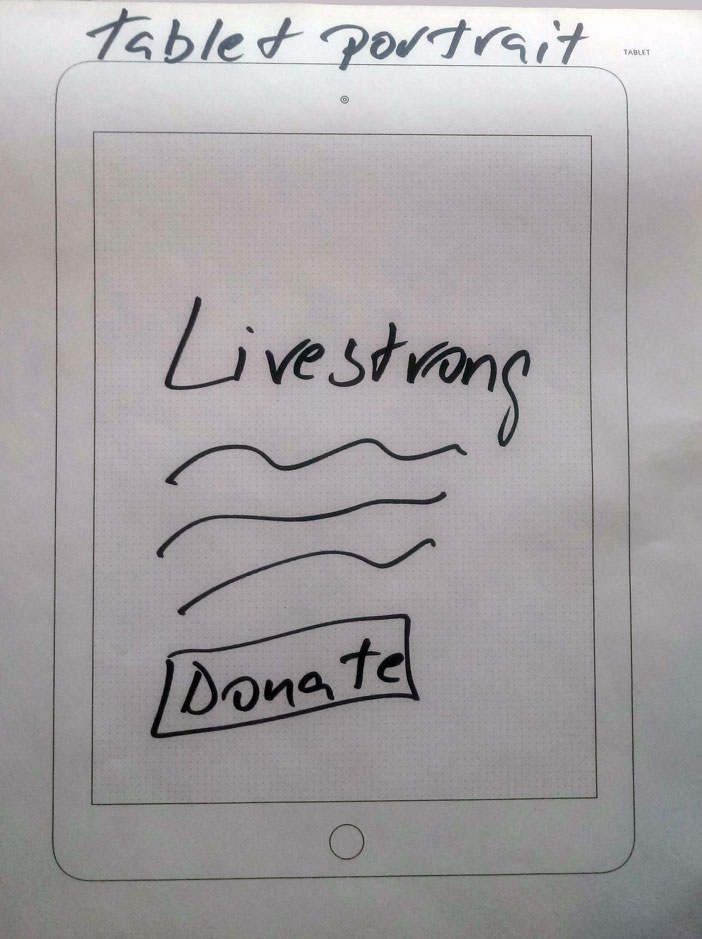 tablet portrait
TABLET
Livestrong
Donate